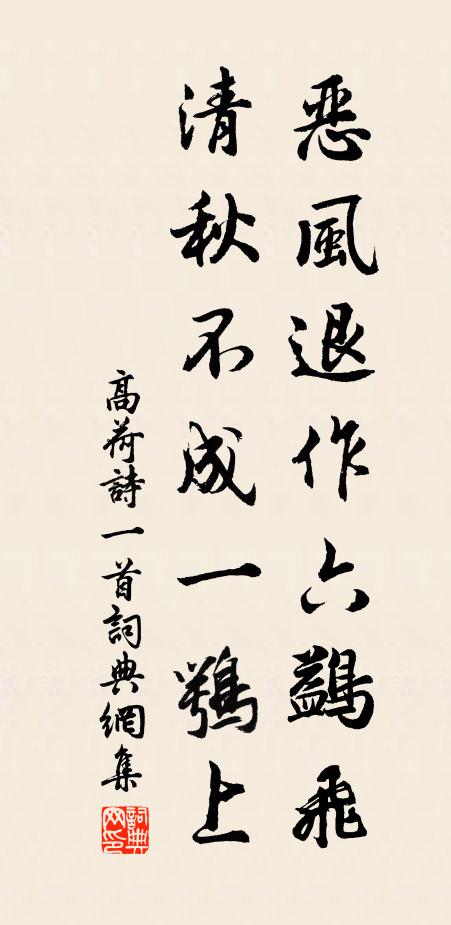 惡風退作六鷁飛
清秋不成一鶚上
高荷詩一首詞典網集
詞典
网印